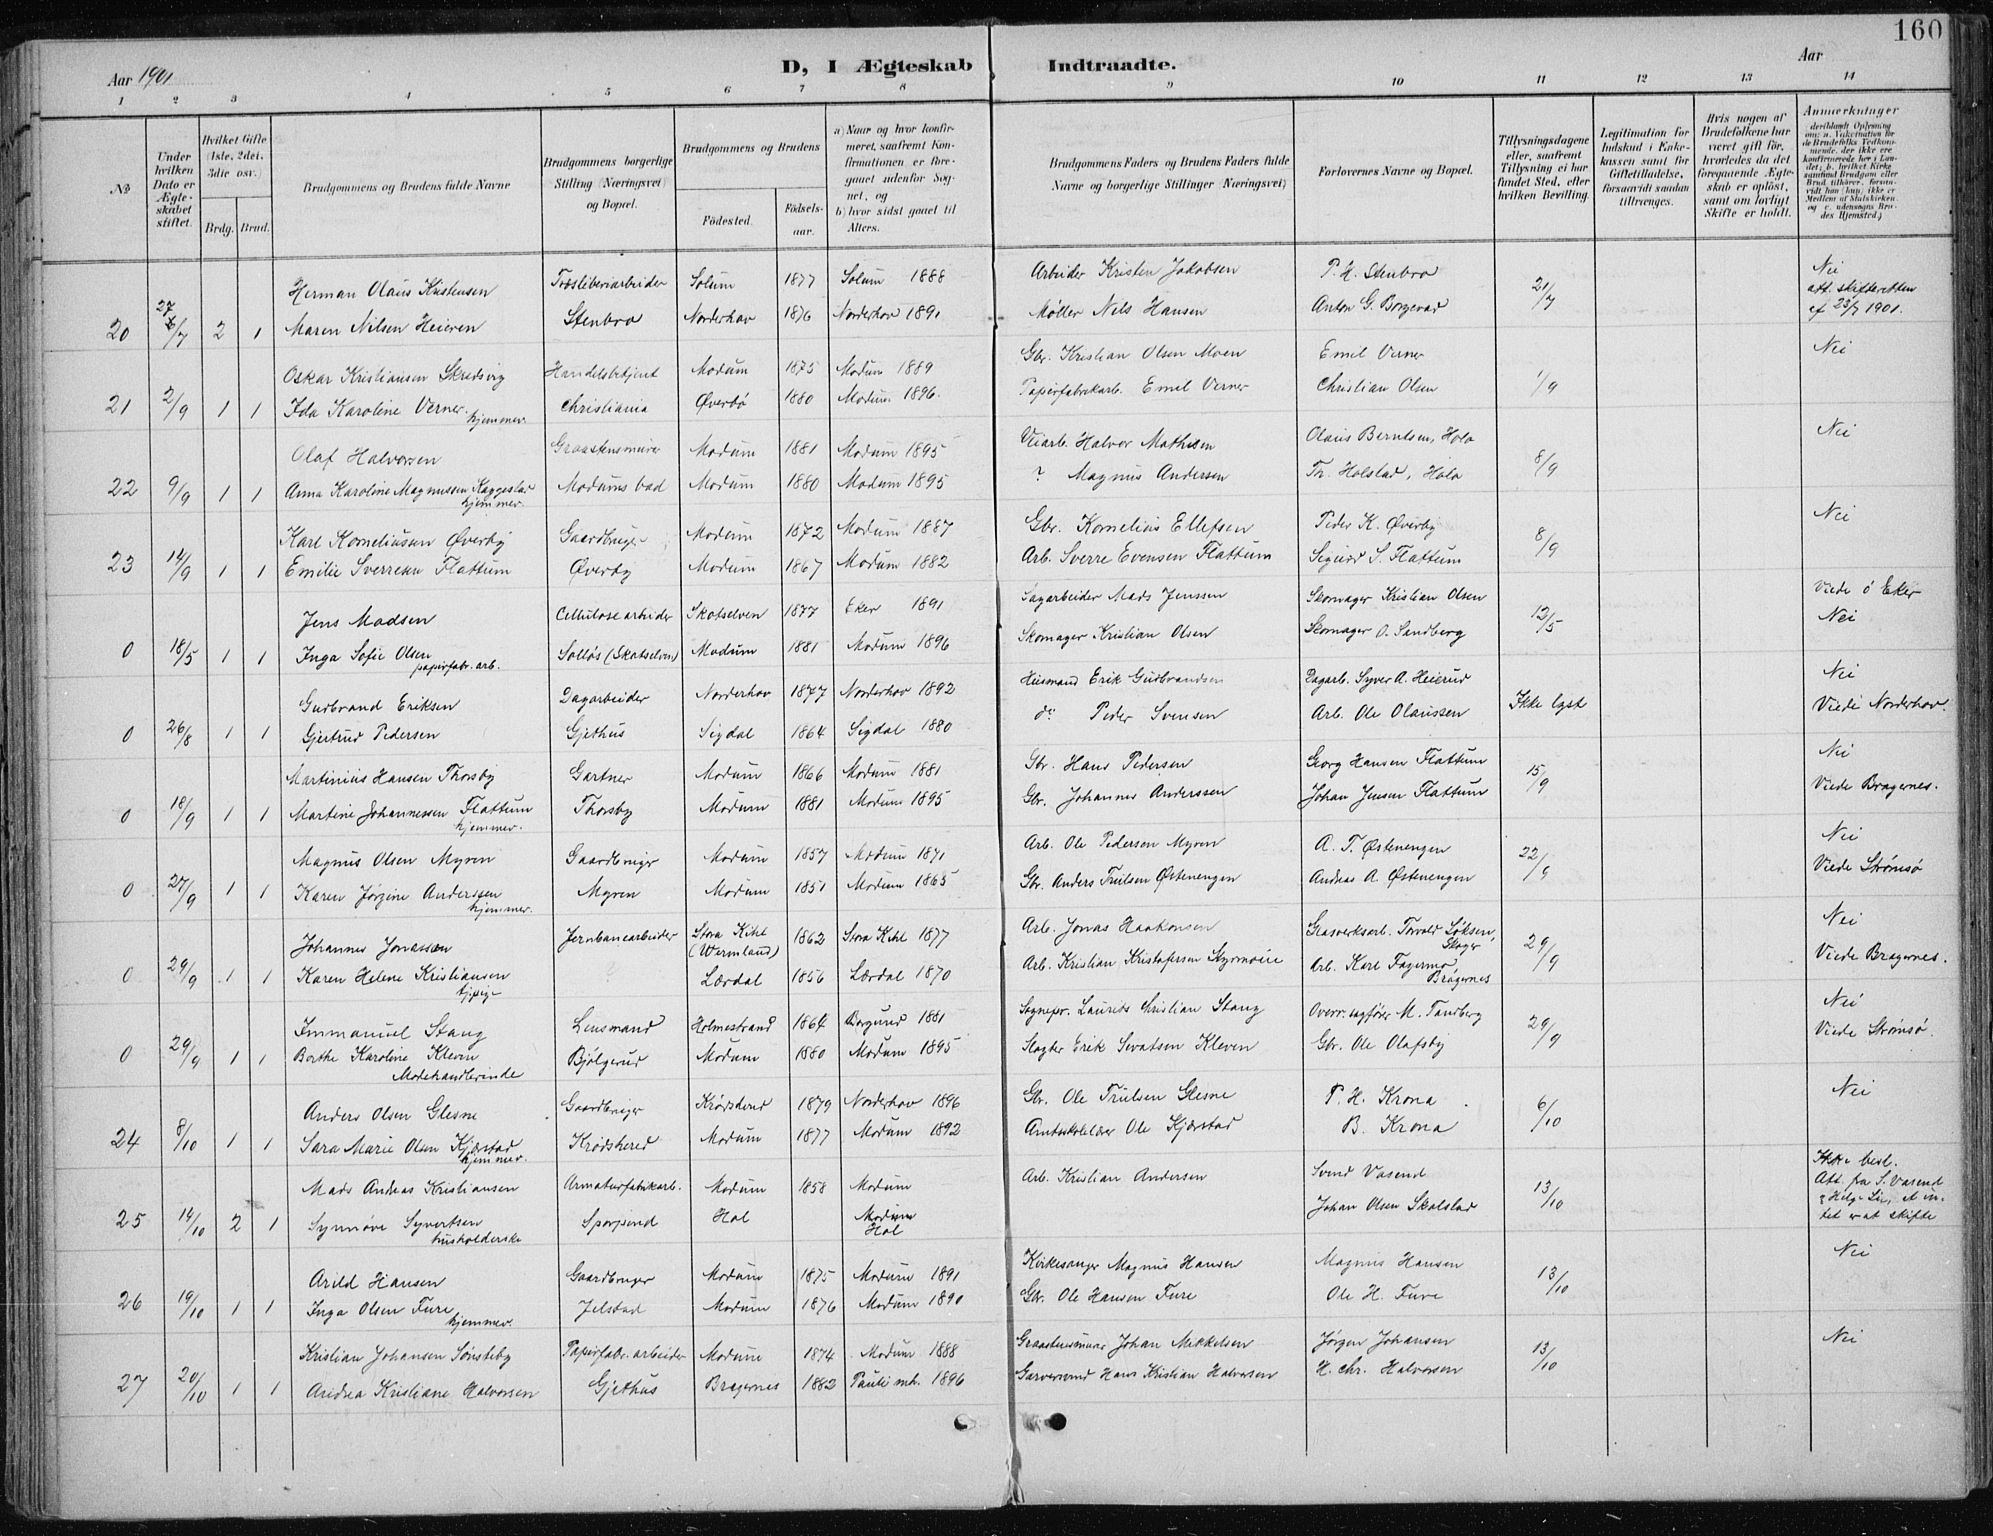 160
D, I Ægteskab Indtraadte.
Aar 1901
Aar
1 2 3 4 5 6 7 8 9 10 11 12 13 14
№
Under hvilken Dato er Ægteskabet stiftet.
Hvilket Gifte (1ste, 2det, 3die osv.)
Brdg. Brud.
Brudgommens og Brudens fulde Navne
Brudgommens borgerlige Stilling (Næringsvei) og Bopæl.
Brudgommens og Brudens
Födested. Födselsaar.
a) Naar og hvor konfirmeret, saafremt Konfirmationen er foregaaet udenfor Sognet, og
b) hvor sidst gaaet til Alters.
Brudgommens Faders og Brudens Faders fulde Navne og borgerlige Stillinger (Næringsvei)
Forlovernes Navne og Bopæl.
Tillysningsdagene eller, saafremt Tillysning ei har fundet Sted, efter hvilken Bevilling.
Legitimation for Indskud i Enkekassen samt for Giftetilladelse, forsaavidt saadan tiltrænges.
Hvis nogen af Brudefolkene har været gift før, hvorledes da det foregaaende Ægteskab er oplöst, samt om lovligt Skifte er holdt.
Anmærkninger
Herman Olaus Kristensen Træsliberiarbeider Solum 1877 Solum 1888 Arbeider Kristen Jakobsen P. H. Stenbro 21/7 Nei
att. skifteretten
20 27/7 2 1 Maren Nilsen Heieren Stenbro Norderhov 1876 Norderhov 1891 Møller Nils Hansen Anton G. Borgevad ef 23/7 1901.
Oskar Kristiansen Skredsvig Handelsbetjent Modum 1875 Modum 1889 Gbr. Kristian Olsen Moen Emil Verner 1/9 Nei
21 2/9 1 1 Ida Karoline Verner Christiania Øverbö 1880 Modum 1896. Papirfabrikarb. Emil Verner Christian Olsen
hjemmev.
Olaf Halvorsen Graastensmurer Modum 1881 Modum 1895 Veiarb. Halvor Mathisen Olaus Berntsen, Hole 8/9 Nei
22 9/9 1 1 Anna Karoline Magnussen Kaggestad Modums bad Modum 1880 Modum 1895 ? Magnus Andersen Th. Holstad, Hole
hjemmev.
Karl Korneliussen Øverby Gaardbruger Modum 1872 Modum 1887 Gbr. Kornelius Ellefsen Peder K. Øverby 8/9 Nei
23 14/9 1 1 Emilie Sverresen Flattum Øverby Modum 1867 Modum 1882 Arb. Sverre Evensen Flattum Sigurd S. Flattum
Jens Madsen Cellulosearbeider Skotselven 1877 Eker 1891 Sagarbeider Mads Jenssen Skomager Kristian Olsen 12/5 Viede i Eker
Nei
0 18/5 1 1 Inga Sofie Olsen Solløs (Skotselven) Modum 1881 Modum 1896 Skomager Kristian Olsen Skomager O. Sandberg
papirfabr. arb.
Gudbrand Eriksen Dagarbeider Norderhov 1877 Norderhov 1892 Husmand Erik Gudbrandsen Dagarb. Syver A. Heierud Ikke lyst Nei
0 26/8 1 1 Gjertrud Pedersen Gjethus Sigdal 1864 Sigdal 1880 do Peder Svensen Arb. Ole Olaussen Viede Norderhov.
Martinius Hansen Thorsby Gartner Modum 1866 Modum 1881 Gbr. Hans Pedersen Georg Hansen Flattum 15/9 Nei
0 18/9 1 1 Martine Johannessen Flattum Thorsby Modum 1881 Modum 1895 Gbr. Johannes Anderssen Johan Jensen Flattum Viede Bragernes.
hjemmev.
Magnus Olsen Myren Gaardbruger Modum 1857 Modum 1871 Arb. Ole Pedersen Myren A. T. Østenengen 22/9 Nei
0 27/9 1 1 Karen Jørgine Anderssen Myren Modum 1851 Modum 1865 Gbr. Anders Trulsen Østenengen Andreas A. Østenengen Viede Strømsø
hjemmev.
Johannes Jonassen Jernbanearbeider Stora Kihl (Wermland) 1862 Stora Kihl 1877 Arb. Jonas Haakonsen Gasverksarb. Torvald Skoger 29/9 Nei
0 29/9 1 1 Karen Helene Kristiansen ? Lærdal 1856 Lærdal 1870 Arb. Kristian Kristofersen Arb. Karl Fagermo, Bragernes Viede Bragernes.
Immanuel Stang Lensmand Holmestrand 1864 Borgund 1881 Sognepr. Laurits Christian Stang Overr. sagfører M. Tandberg 29/9 Nei
0 29/9 1 1 Berthe Karoline Kleven Bjølgerud Modum 1880 Modum 1895 Slagter Erik Kleven Gbr. Ole Olafsby Viede Strømsø.
Modehandlerinde
Anders Olsen Glesne Gaardbruger Krødsherred 1879 Norderhov 1896 Gbr. Ole Trulsen Glesne P. H. Krona 6/10 Nei
24 8/10 1 1 Sara Marie Olsen Kjærstad Krødsherred Modum 1877 Modum 1892 Amtsskolelærer Ole Kjærstad B. Krona
hjemmev.
Mads Andreas Kristiansen Armaturfabrikarb. Modum 1858 Modum Arb. Kristian Andersen Svend Vasend 13/10 Ikke besl.
Att. fra S. Vasend
25 14/10 2 1 Synnøve Syvertsen Hol Modum Hol Johan Olsen Skalstad Helge Lie, at intet er at skifte
husholderske
Arild Hansen Gaardbruger Modum 1875 Modum 1891 Kirkesanger Magnus Hansen Magnus Hansen 13/10 Nei
26 19/10 1 1 Inga Olsen Fure Jelstad Modum 1876 Modum 1890 Gbr. Ole Hansen Fure Ole H. Fure
hjemmev.
Kristian Johansen Sønsteby Papirfabr. arbeider Modum 1874 Modum 1888 Graastensmurer Johan Mikkelsen Jørgen Johansen 13/10 Nei
27 20/10 1 1 Andrea Kristiane Halvorsen Gjethus Bragernes 1882 Pauli mh. 1896 Garversvend Hans Kristian Halvorsen H. Chr. Halvorsen